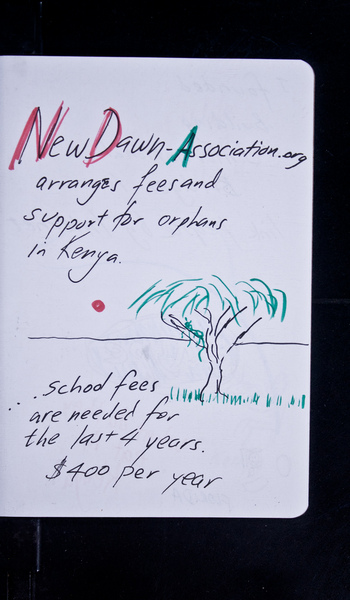 NewDawn-Association.org
arranges fees and
support for orphans
in Kenya.
...school fees
are needed for
the last 4 years.
$400 per year